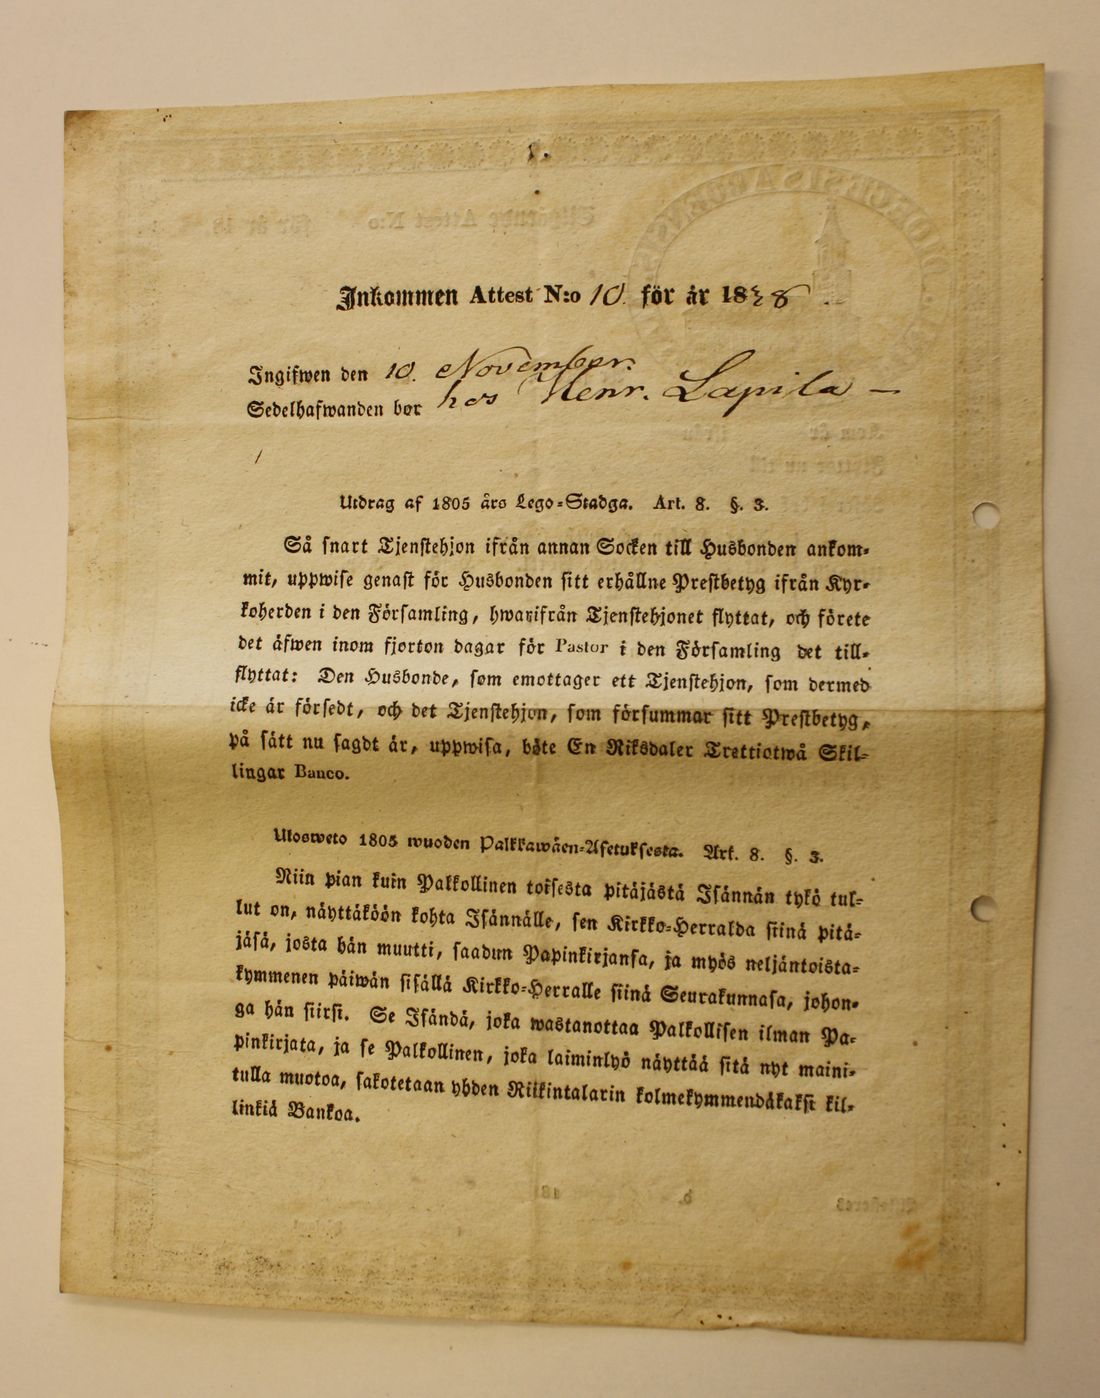 Inkommen Attest N:o 10. för år 1838.
Ingifwen den 10. November.
Sedelhafwanden bor hos Henr. Lapila —
Utdrag af 1805 års Lego-Stadga. Art. 8. §. 3.
Så snart Tjenstehjon ifrån annan Socken till Husbonden ankom-
mit, uppwise genast för Husbonden sitt erhållne Prestbetyg ifrån Kyr-
koherden i den Församling, hwarifrån Tjenstehjonet flyttat, och förete
det äfwen inom fjorton dagar för Pastor i den Församling det till-
flyttat: Den Husbonde, som emottager ett Tjenstehjon, som dermed
icke är försedt, och det Tjenstehjon, som försummar sitt Prestbetyg,
på sätt nu sagdt är, uppwisa, böte En Riksdaler Trettiotwå Skil-
lingar Banco.
Ulosweto 1805 wuoden Palkkawäen-Asetuksesta. Art. 8. §. 3.
Niin pian kuin Palkollinen toisesta pitäjästä Isännän tykö tul-
lut on, näyttäköön kohta Isännälle, sen Kirkko-Herralda siinä pitä-
jäsä, josta hän muutti, saadun Papinkirjansa, ja myös neljäntoista-
kymmenen päiwän sisällä Kirkko-Herralle siinä Seurakunnasa, johon-
ga hän siirsi. Se Isändä, joka wastanottaa Palkollisen ilman Pa-
pinkirjata, ja se Palkollinen, joka laiminlyö näyttää sitä nyt maini-
tulla muotoa, sakotetaan yhden Riikintalarin kolmekymmendäkaksi kil-
linkiä Bankoa.